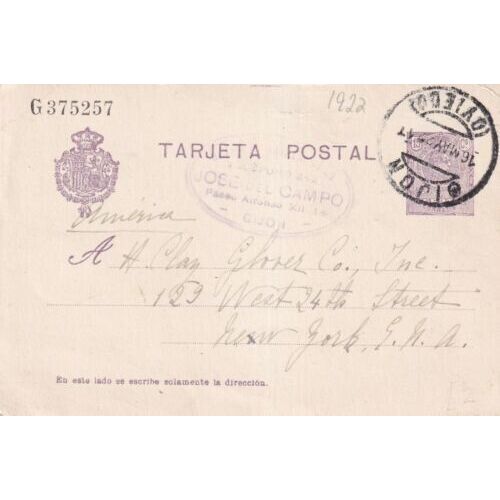 G375257
1922
GIJON
(OVIEDO)
16 MAY
TARJETA POSTAL
JOSÉ DEL CAMPO
Paseo Alfonso XII
- GIJON -
América
A H. Clay Glover Co., Inc.
129 West 24th Street
New York, E. U. A.
En este lado se escribe solamente la dirección.